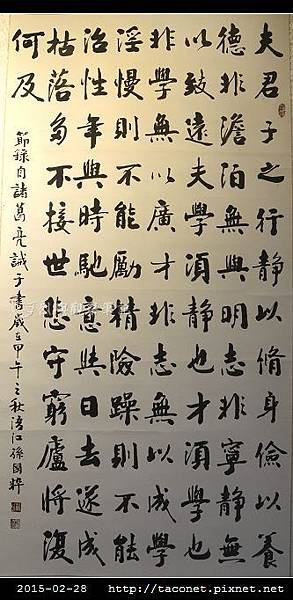 夫君子之行靜以脩身儉以養
德非澹泊無與明志非寧靜無
以致遠夫學須靜也才須學也
非學無以廣才非志無以成學
淫慢則不能勵精險躁則不能
治性年與時馳意與日去遂成
枯落多不接世悲守窮廬將復
何及
節錄自諸葛亮誡子書歲在甲午之秋江孫國粹
2015-02-28 http://taconet.pixnet.net